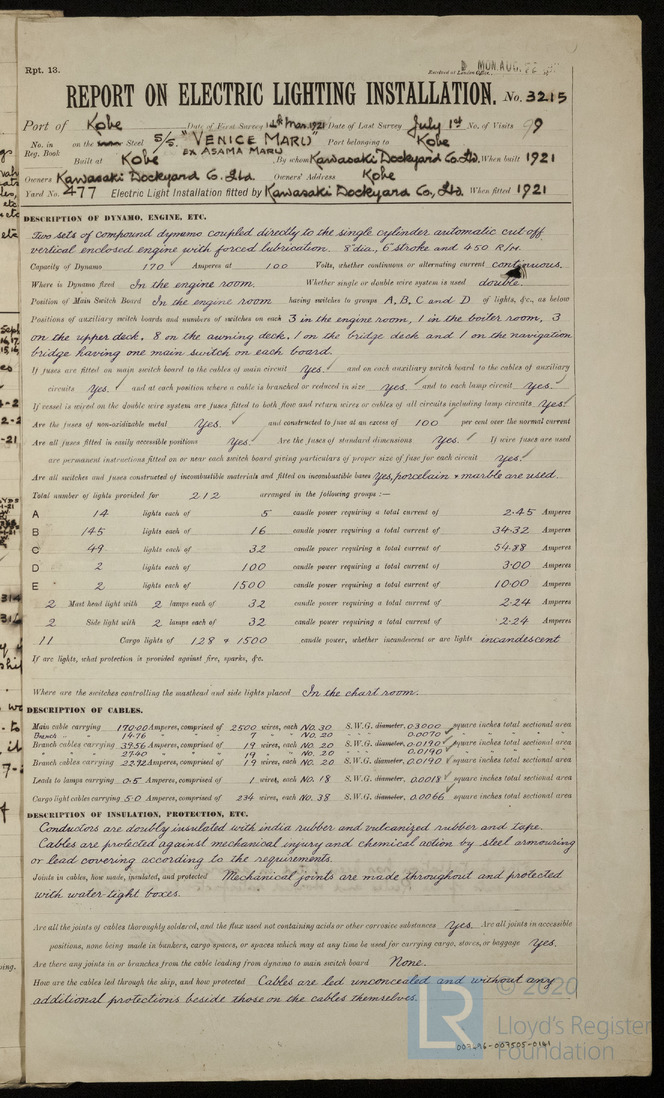 Rpt. 13.
MON. AUG. 22
Received at London Office
REPORT ON ELECTRIC LIGHTING INSTALLATION. No. 3215
Port of Kobe Date of First Survey 14th Mar. 1921 Date of Last Survey July 1st No. of Visits 99
No. in Reg. Book on the Steel S/S. "VENICE MARU" Port belonging to Kobe
EX ASAMA MARU
Built at Kobe By whom Kawasaki Dockyard Co. Ltd. When built 1921
Owners Kawasaki Dockyard Co. Ltd. Owners' Address Kobe
Yard No. 477 Electric Light Installation fitted by Kawasaki Dockyard Co., Ltd. When fitted 1921
DESCRIPTION OF DYNAMO, ENGINE, ETC.
Two sets of compound dynamo coupled directly to the single cylinder automatic cut off
vertical enclosed engine with forced lubrication. 8" dia., 6" stroke and 450 R/M.
Capacity of Dynamo 170 ✓ Amperes at 100 Volts, whether continuous or alternating current continuous.
Where is Dynamo fixed In the engine room. Whether single or double wire system is used double.
Position of Main Switch Board In the engine room having switches to groups A, B, C and D of lights, &c., as below
Positions of auxiliary switch boards and numbers of switches on each 3 in the engine room, 1 in the boiler room, 3
on the upper deck, 8 on the awning deck, 1 on the bridge deck and 1 on the navigation
bridge having one main switch on each board.
If fuses are fitted on main switch board to the cables of main circuit Yes. ✓ and on each auxiliary switch board to the cables of auxiliary
circuits Yes. ✓ and at each position where a cable is branched or reduced in size Yes. ✓ and to each lamp circuit Yes. ✓
If vessel is wired on the double wire system are fuses fitted to both flow and return wires or cables of all circuits including lamp circuits Yes. ✓
Are the fuses of non-oxidizable metal Yes. ✓ and constructed to fuse at an excess of 100 per cent over the normal current
Are all fuses fitted in easily accessible positions Yes. ✓ Are the fuses of standard dimensions Yes. ✓ If wire fuses are used
are permanent instructions fitted on or near each switch board giving particulars of proper size of fuse for each circuit Yes. ✓
Are all switches and fuses constructed of incombustible materials and fitted on incombustible bases Yes, porcelain & marble are used.
Total number of lights provided for 212 arranged in the following groups :—
A 14 lights each of 5 candle power requiring a total current of 2.45 Amperes
B 145 lights each of 16 candle power requiring a total current of 34.32 Amperes
C 49 lights each of 32 candle power requiring a total current of 54.88 Amperes
D 2 lights each of 100 candle power requiring a total current of 3.00 Amperes
E 2 lights each of 1500 candle power requiring a total current of 10.00 Amperes
2 Mast head light with 2 lamps each of 32 candle power requiring a total current of 2.24 Amperes
2 Side light with 2 lamps each of 32 candle power requiring a total current of 2.24 Amperes
11 Cargo lights of 128 & 1500 candle power, whether incandescent or arc lights incandescent
If arc lights, what protection is provided against fire, sparks, &c.
Where are the switches controlling the masthead and side lights placed In the chart room.
DESCRIPTION OF CABLES.
Main cable carrying 170.00 Amperes, comprised of 2500 wires, each No. 30 S.W.G. diameter, 0.3000 square inches total sectional area
Branch " 14.76 " " 7 " " No. 20 " " 0.0070 ✓ " " "
Branch cables carrying 39.56 Amperes, comprised of 19 wires, each No. 20 S.W.G. diameter, 0.0190 ✓ square inches total sectional area
27.40 " 19 " " No. 20 " 0.0190 ✓ " " "
Branch cables carrying 22.72 Amperes, comprised of 19 wires, each No. 20 S.W.G. diameter, 0.0190 ✓ square inches total sectional area
Leads to lamps carrying 0.5 Amperes, comprised of 1 wires, each No. 18 S.W.G. diameter, 0.0018 ✓ square inches total sectional area
Cargo light cables carrying 5.0 Amperes, comprised of 234 wires, each No. 38 S.W.G. diameter, 0.0066 ✓ square inches total sectional area
DESCRIPTION OF INSULATION, PROTECTION, ETC.
Conductors are doubly insulated with india rubber and vulcanized rubber and tape.
Cables are protected against mechanical injury and chemical action by steel armouring
or lead covering according to the requirements.
Joints in cables, how made, insulated, and protected Mechanical joints are made throughout and protected
with water tight boxes.
Are all the joints of cables thoroughly soldered, and the flux used not containing acids or other corrosive substances Yes. Are all joints in accessible
positions, none being made in bunkers, cargo spaces, or spaces which may at any time be used for carrying cargo, stores, or baggage Yes.
Are there any joints in or branches from the cable leading from dynamo to main switch board None.
How are the cables led through the ship, and how protected Cables are led unconcealed and without any
additional protections beside those on the cables themselves.
© 2020
LR
Lloyd's Register
Foundation
007496-007505-0161